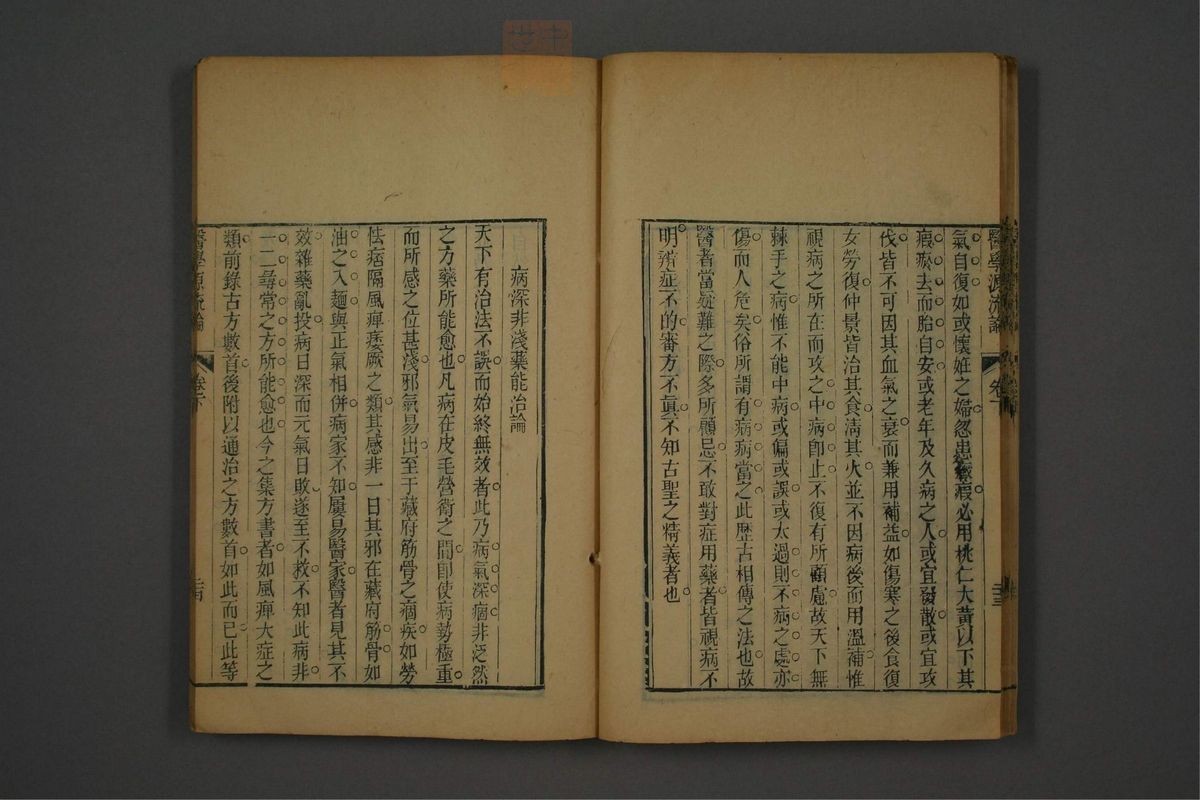 醫學源流論
卷下
二十三
氣自復如或懷妊之婦忽患癥瘕必用桃仁大黃以下其
瘕瘀去而胎自安或老年及久病之人或宜發散或宜攻
伐皆不可因其血氣之衰而兼用補益如傷寒之後食復
女勞復仲景皆治其食清其火並不因病後而用溫補惟
視病之所在而攻之中病卽止不復有所顧慮故天下無
棘手之病惟不能中病或偏或誤或太過則不病之處亦
傷而人危矣俗所謂有病病當之此歷古相傳之法也故
醫者當疑難之際多所顧忌不敢對症用藥者皆視病不
明辨症不的審方不眞不知古聖之精義者也
病深非淺藥能治論
天下有治法不誤而始終無效者此乃病氣深痼非泛然
之方藥所能愈也凡病在皮毛營衛之間卽使病勢極重
而所感之位甚淺邪氣易出至于藏府筋骨之痼疾如勞
怯痞隔風痺痿厥之類其感非一日其邪在藏府筋骨如
油之入麵與正氣相併病家不知屢易醫家醫者見其不
效雜藥亂投病日深而元氣日敗遂至不救不知此病非
一二尋常之方所能愈也今之集方書者如風痺大症之
類前錄古方數首後附以通治之方數首如此而已此等
醫學源流論
卷下
二十四